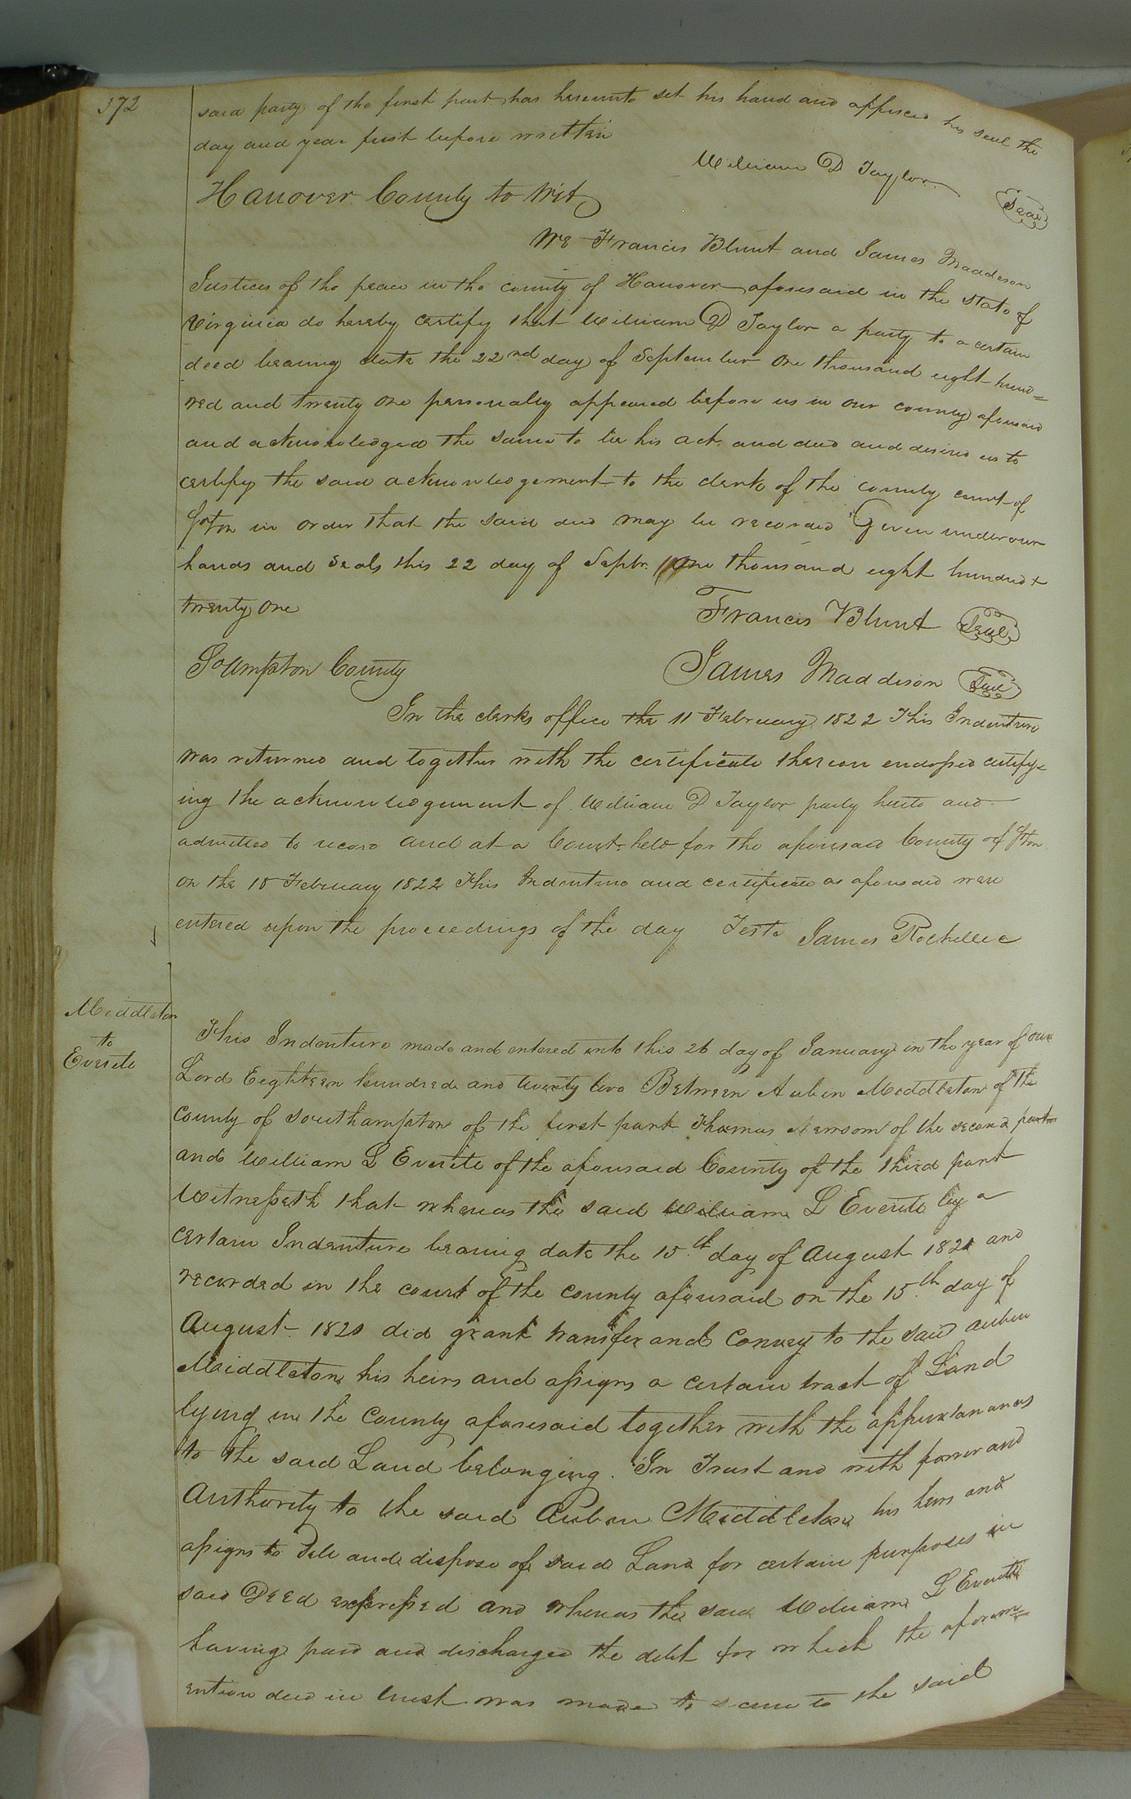 372
said party of the first part has hereunto set his hand and affixed his seal the
day and year first before written
William D Taylor Seal
Hanover County to Wit
We Francis Blunt and James Maddison
Justices of the peace in the county of Hanover aforesaid in the state of
Virginia do hereby certify that William D Taylor a party to a certain
deed bearing date the 22nd day of September One thousand eight hund=
red and twenty one personally appeared before us in our county aforesaid
and acknowledged the same to be his act and deed and desired us to
certify the said acknowledgement to the clerk of the county court of
Soton in order that the said deed may be recorded Given under our
hands and seals this 22 day of Septbr. One thousand eight hundred &
twenty One
Francis Blunt Seal
James Maddison Seal
Southampton County
In the clerks office the 11 February 1822 This Indenture
was returned and together with the certificate thereon endorsed certify=
ing the acknowledgement of William D Taylor party hereto and
admitted to record and at a Court held for the aforesaid County of Soton
on the 18 February 1822 This Indenture and certificate as aforesaid were
entered upon the proceedings of the day Teste James Rochelle c
Middleton
to
Everite
This Indenture made and entered into this 26 day of January in the year of our
Lord Eighteen hundred and twenty two Between Auben Middleton of the
County of Southampton of the first part Thomas Newsom of the second part
and William L Everite of the aforesaid County of the third part
Witnesseth that whereas the said William L Everite by a
certain Indenture bearing date the 15th day of August 1820 and
recorded in the court of the county aforesaid on the 15th day of
August 1820 did grant transfer and convey to the said Auben
Middleton his heirs and assigns a certain tract of Land
lying in the County aforesaid together with the appurtanances
to the said Land belonging. In Trust and with power and
Authority to the said Auben Middleton his heirs and
assigns to sell and dispose of said Land for certain purposes in
said Deed expressed and whereas the said William L Everite
having paid and discharged the debt for which the aforem=
ention deed in trust was made to secure to the said